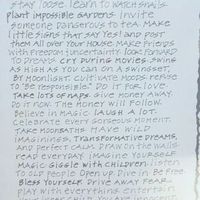 Stay loose. learn to watch snails.
Plant impossible gardens. Invite
someone dangerous to tea. Make
little signs that say Yes! and post
them all over Your House. Make friends
with freedom & uncertainty. look forward
to dreams. Cry During movies. Swing
as high as you can on a swingset
By Moonlight. Cultivate moods. refuse
to "be responsible." Do it for love.
Take lots of naps. Give money away.
Do it now. The money will follow.
Believe in magic. laugh a lot.
Celebrate every gorgeous moment.
Take moonbaths. Have wild
imaginings, Transformative dreams,
and perfect calm. Draw on the walls.
read everyday. Imagine yourself
magic. Giggle with children. listen
to old people. Open up. Dive in. Be free.
Bless yourself. Drive away fear.
Play with everything. Entertain
your inner child. You are innocent.